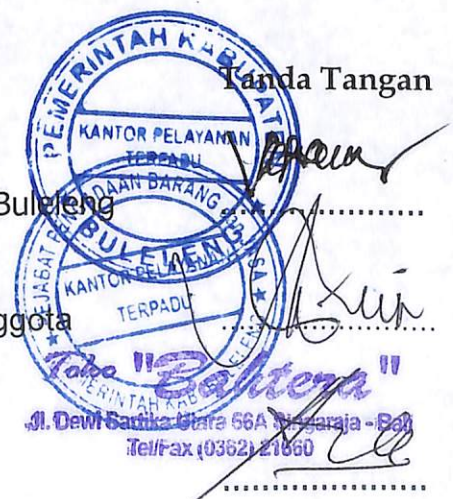 Tanda Tangan
PEMERINTAH KABUPATEN
KANTOR PELAYANAN
TERPADU
BULELENG
Buleleng
PENGADAAN BARANG
KANTOR PELAYANAN
TERPADU
PEMERINTAH KAB
nggota
Toko "Bahtera"
Jl. Dewi Sartika Utara 66A Singaraja - Bali
Tel/Fax (0362) 21660